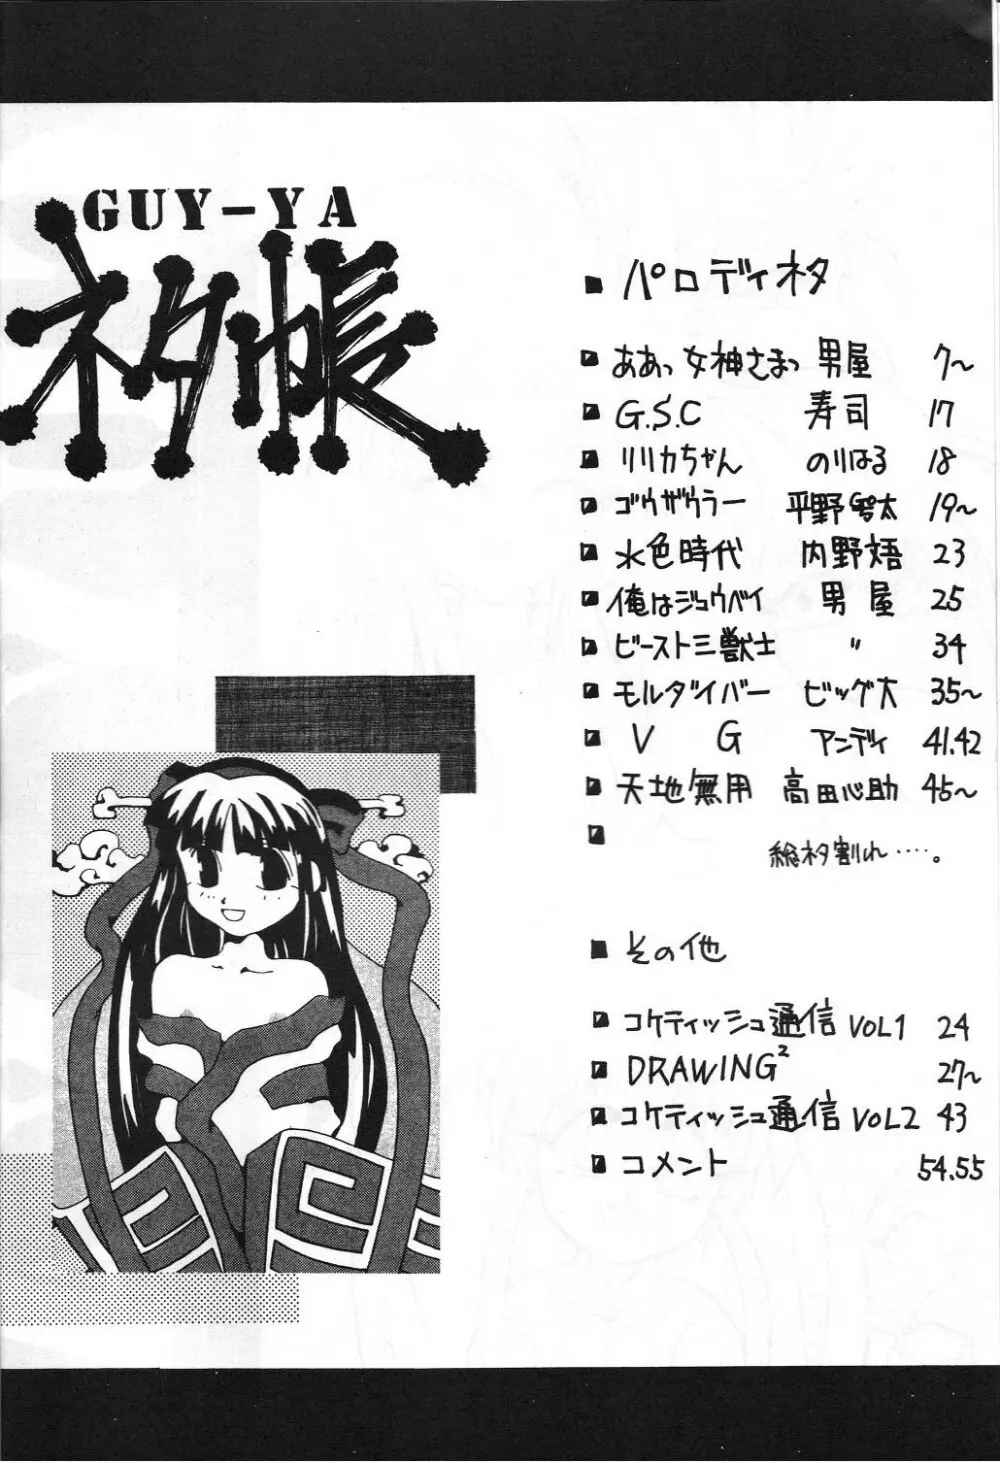 GUY-YA
ネタ帳
パロディネタ
ああっ女神さまっ 男屋 7〜
G.S.C 寿司 17
リリカちゃん のりはる 18
ゴウザウラー 平野 太 19〜
水色時代 内野 23
俺はジョウバイ 男屋 25
ビースト三獣士 〃 34
モルダイバー ビッグ大 35〜
V G アンディ 41.42
天地無用 高田心助 45〜
総ネタ割れ‥‥。
その他
コケティッシュ通信 VOL1 24
DRAWING² 27〜
コケティッシュ通信 VOL2 43
コメント 54.55